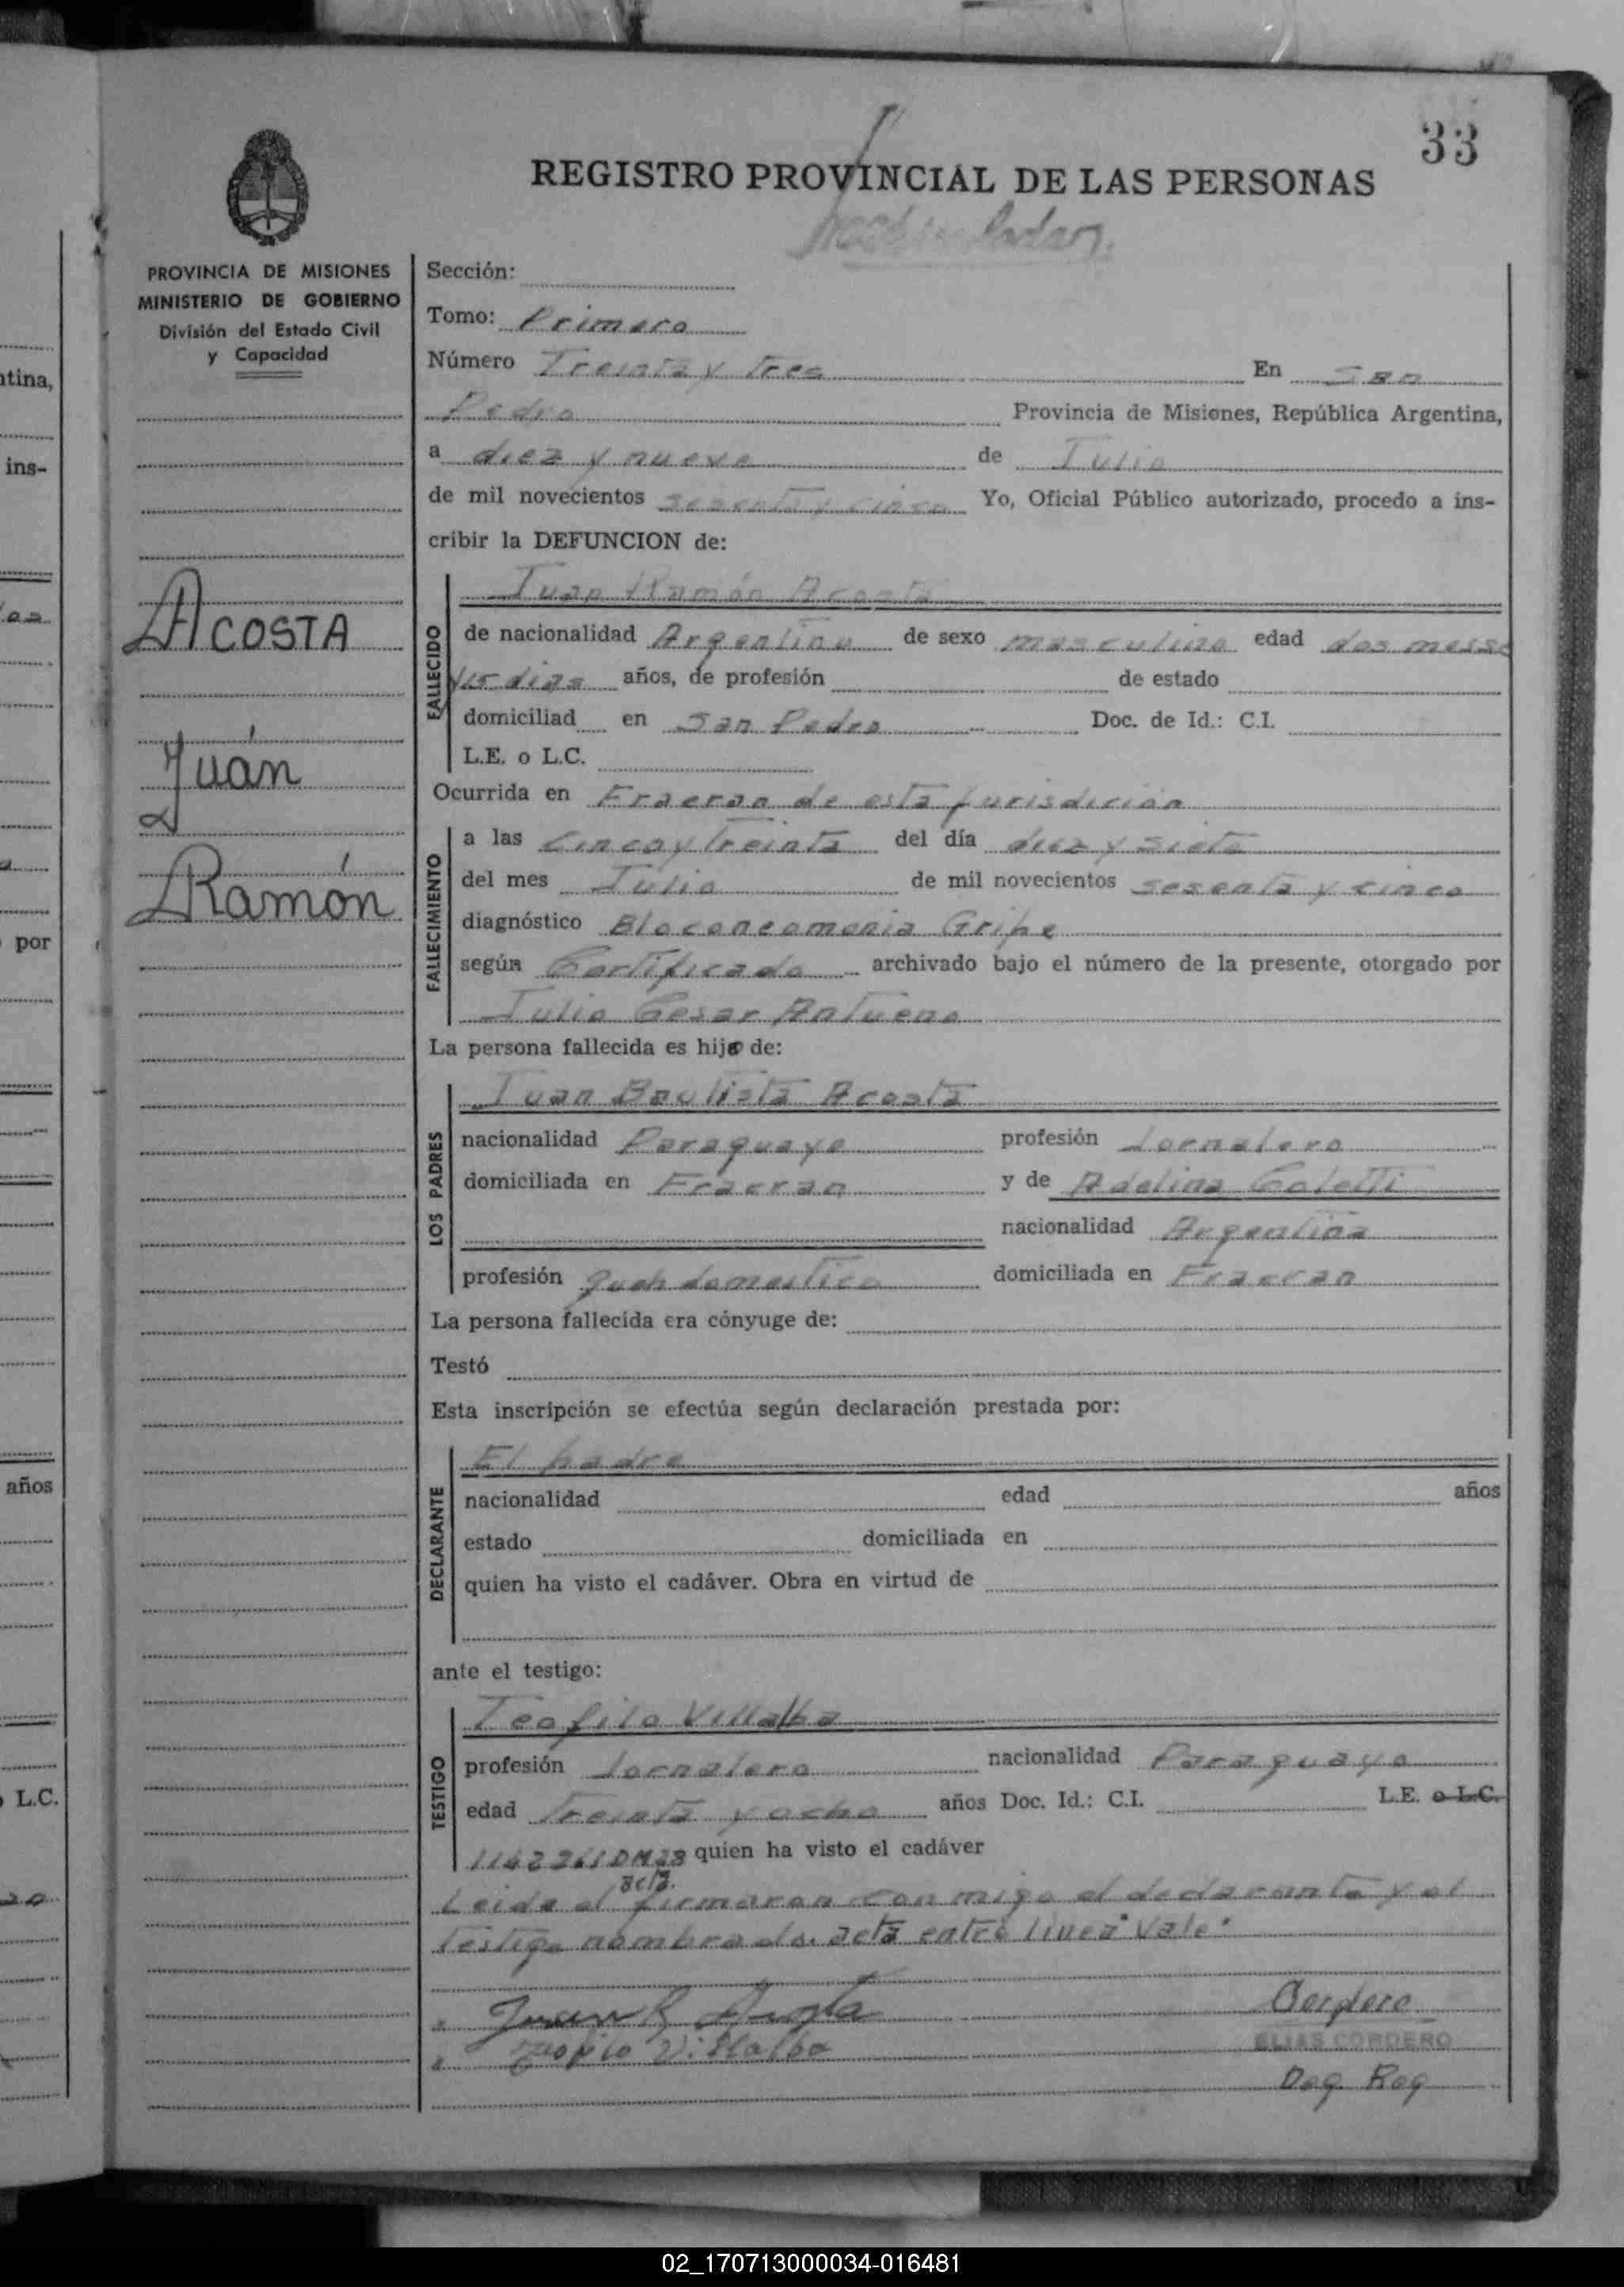 33
REGISTRO PROVINCIAL DE LAS PERSONAS
PROVINCIA DE MISIONES
MINISTERIO DE GOBIERNO
División del Estado Civil
y Capacidad
ACOSTA
Juán
Ramón
Sección:
Tomo: Primero
Número Treinta y tres En San
Pedro Provincia de Misiones, República Argentina,
a diez y nueve de Julio
de mil novecientos sesenta y cinco Yo, Oficial Público autorizado, procedo a ins-
cribir la DEFUNCION de:
FALLECIDO
Juan Ramón Acosta
de nacionalidad Argentino de sexo masculino edad dos messe
y 15 dias años, de profesión de estado
domiciliad en San Pedro Doc. de Id.: C.I.
L.E. o L.C.
Ocurrida en Fracran de esta jurisdición
FALLECIMIENTO
a las Cinco y treinta del día diez y siete
del mes Julio de mil novecientos sesenta y cinco
diagnóstico Bloconeomonia Gripe
según Certificado archivado bajo el número de la presente, otorgado por
Julio Cesar Antueno
La persona fallecida es hijo de:
LOS PADRES
Juan Bautista Acosta
nacionalidad Paraguayo profesión Jornalero
domiciliada en Fracran y de Adelina Coletti
nacionalidad Argentina
profesión queh domestico domiciliada en Fracran
La persona fallecida era cónyuge de:
Testó
Esta inscripción se efectúa según declaración prestada por:
DECLARANTE
El padre
nacionalidad edad años
estado domiciliada en
quien ha visto el cadáver. Obra en virtud de
ante el testigo:
TESTIGO
Teofilo Villalba
profesión Jornalero nacionalidad Paraguayo
edad Treinta y ocho años Doc. Id.: C.I. L.E. o L.C.
quien ha visto el cadáver
acta.
Leida el firmaron con migo el declarante y el
testigo nombrado. acta entre linea "Vale"
Cordero
Villalba
ELIAS CORDERO
Deg. Reg
tina,
ins-
por
años
L.C.
02_170713000034-016481